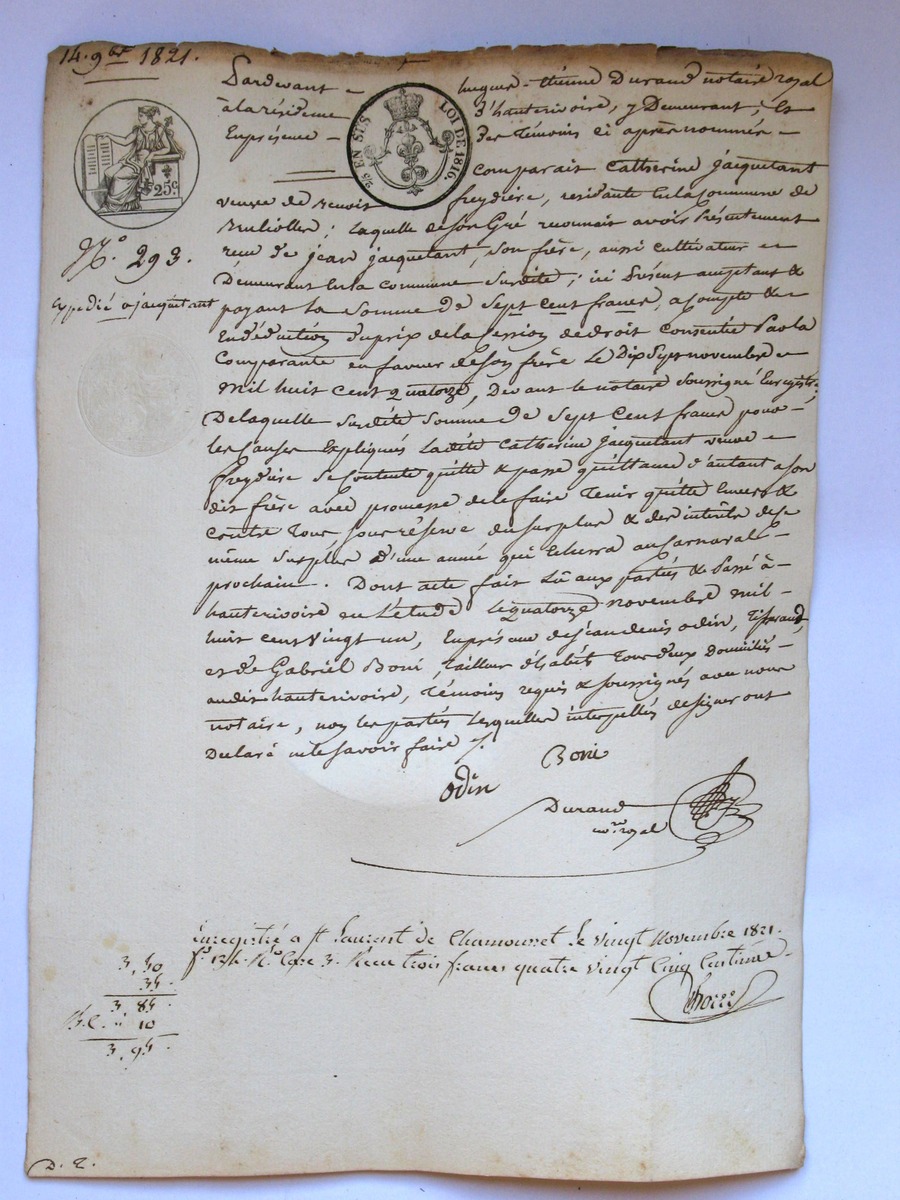 14. 9bre 1821.
25c
2/5 EN SUS LOI DE 1816.
No. 293.
Expédié a jacquetant
Pardevant hugues-étienne Durand notaire royal
à la résidence d'hauterivoire, y Demeurant; Et
En présence Des Témoins ci après nommés
Comparait Catherine jacquetant
veuve de Benoit freydière, résidante En la Commune de
; Laquelle de son Gré reconnait avoir Présentement
recu De jean jacquetant, son frère, aussi cultivateur
Demeurant En la commune Susdite; ici Présent acceptant &
payant La Somme De Sept Cent francs, a compte &
En déduction du prix de la Cession de droit Consentie Par la
Comparante en faveur de son frère Le Dix Sept novembre
Mil huit Cent quatorze, Devant le notaire soussigné Enregistré;
De laquelle Susdite Somme De Sept Cent francs pour
les Causes Expliqués Ladite Catherine Jacquetant veuve
freydière Se Contente quitte & passe quittance d'autant a son
dit frère avec promesse de le faire Tenir quitte Envers &
Contre Tous sous réserve du surplus & des intérêts de ce
même Surplus D'une année qui Echerra au Carnaval
prochain. Dont acte fait Lû aux parties & Passé à
hauterivoire en L'étude Le quatorze novembre mil
huit cent vingt un, En présence de jean denis odin, Tisserand,
et de Gabriel Boni, Tailleur d'habits Tous deux Domiciliés
audit hauterivoire, Témoins requis & soussignés avec nous
notaire, non les parties Lesquelles interpellés de signer ont
Déclaré ne le savoir faire
odin Boni
Durand
no.re royal
Enregistré a St Laurent de Chamousset Le vingt Novembre 1821.
fo 134. Ro Case 3. Recu trois francs quatre vingt Cinq Centimes
3,50
35.
3 85.
10
3,95.
D. 2.